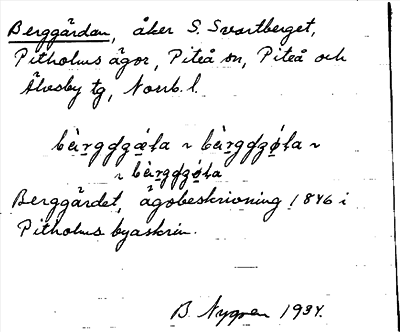 Berggärdan, åker S. Svartberget,
Pitholms ägor, Piteå sn, Piteå och
Älvsby tg, Norrb. l.
Berggärdet, ägobeskrivning 1846 i
Pitholms byaskrin.
B. Nygren 1934.